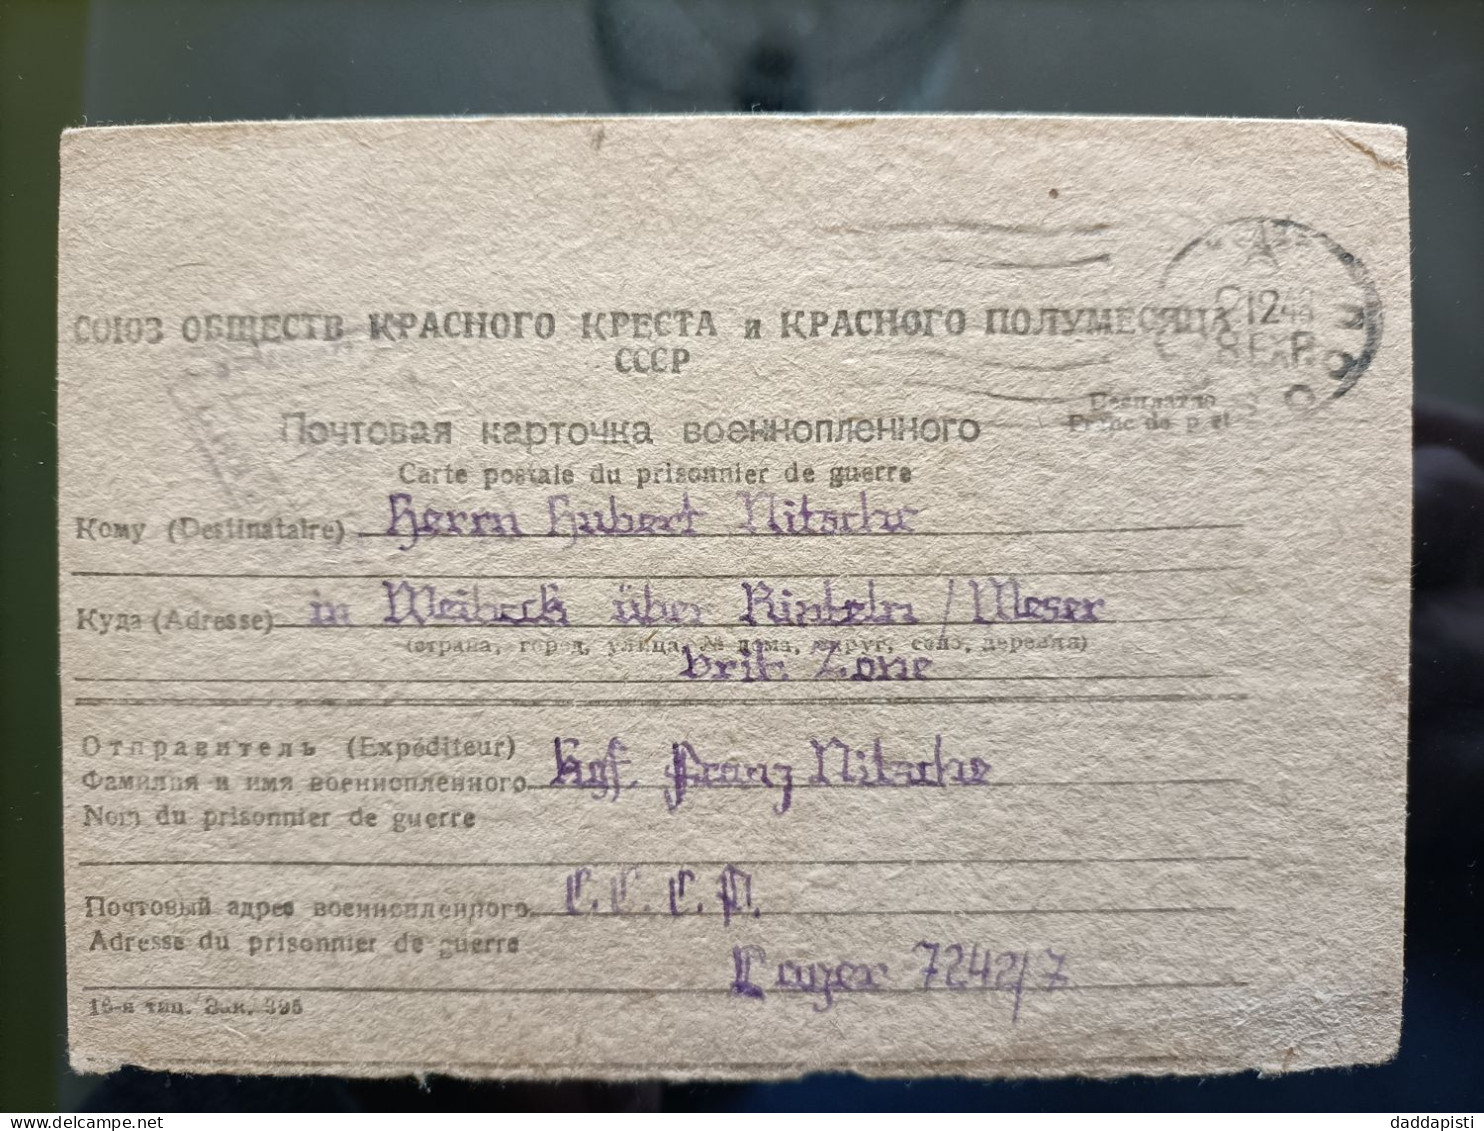 СОЮЗ ОБЩЕСТВ КРАСНОГО КРЕСТА и КРАСНОГО ПОЛУМЕСЯЦА
СССР
Бесплатно
Franc de port
Почтовая карточка военнопленного
Carte postale du prisonnier de guerre
Кому (Destinataire) Herrn Hubert Nitsche
Куда (Adresse) in über Rinteln / Weser
(страна, город, улица, № дома, округ, село, деревня)
brit. Zone
Отправитель (Expéditeur)
Фамилия и имя военнопленного Kgf. Franz Nitsche
Nom du prisonnier de guerre
Почтовый адрес военнопленного С.С.С.Р.
Adresse du prisonnier de guerre
Lager 7242/7
16-я тип. Зак. 395
daddapisti